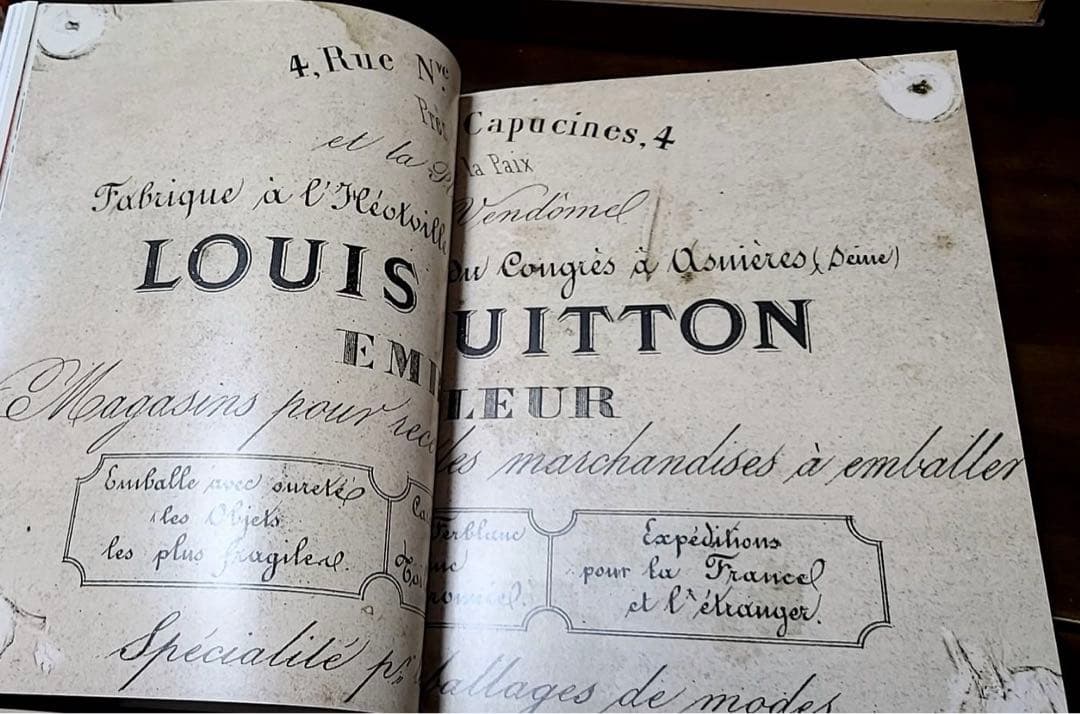 4, Rue Nve Capucines, 4
Prè la Paix
et la Vendôme
Fabrique à l'Héotville du Congrès à Asnières (Seine)
LOUIS UITTON
EM LEUR
Magasins pour rece les marchandises à emballer
Emballe avec sureté
les Objets
les plus fragiles.
Ferblanc
Expéditions
pour la France
et l'étranger.
Spécialité pr ballages de modes